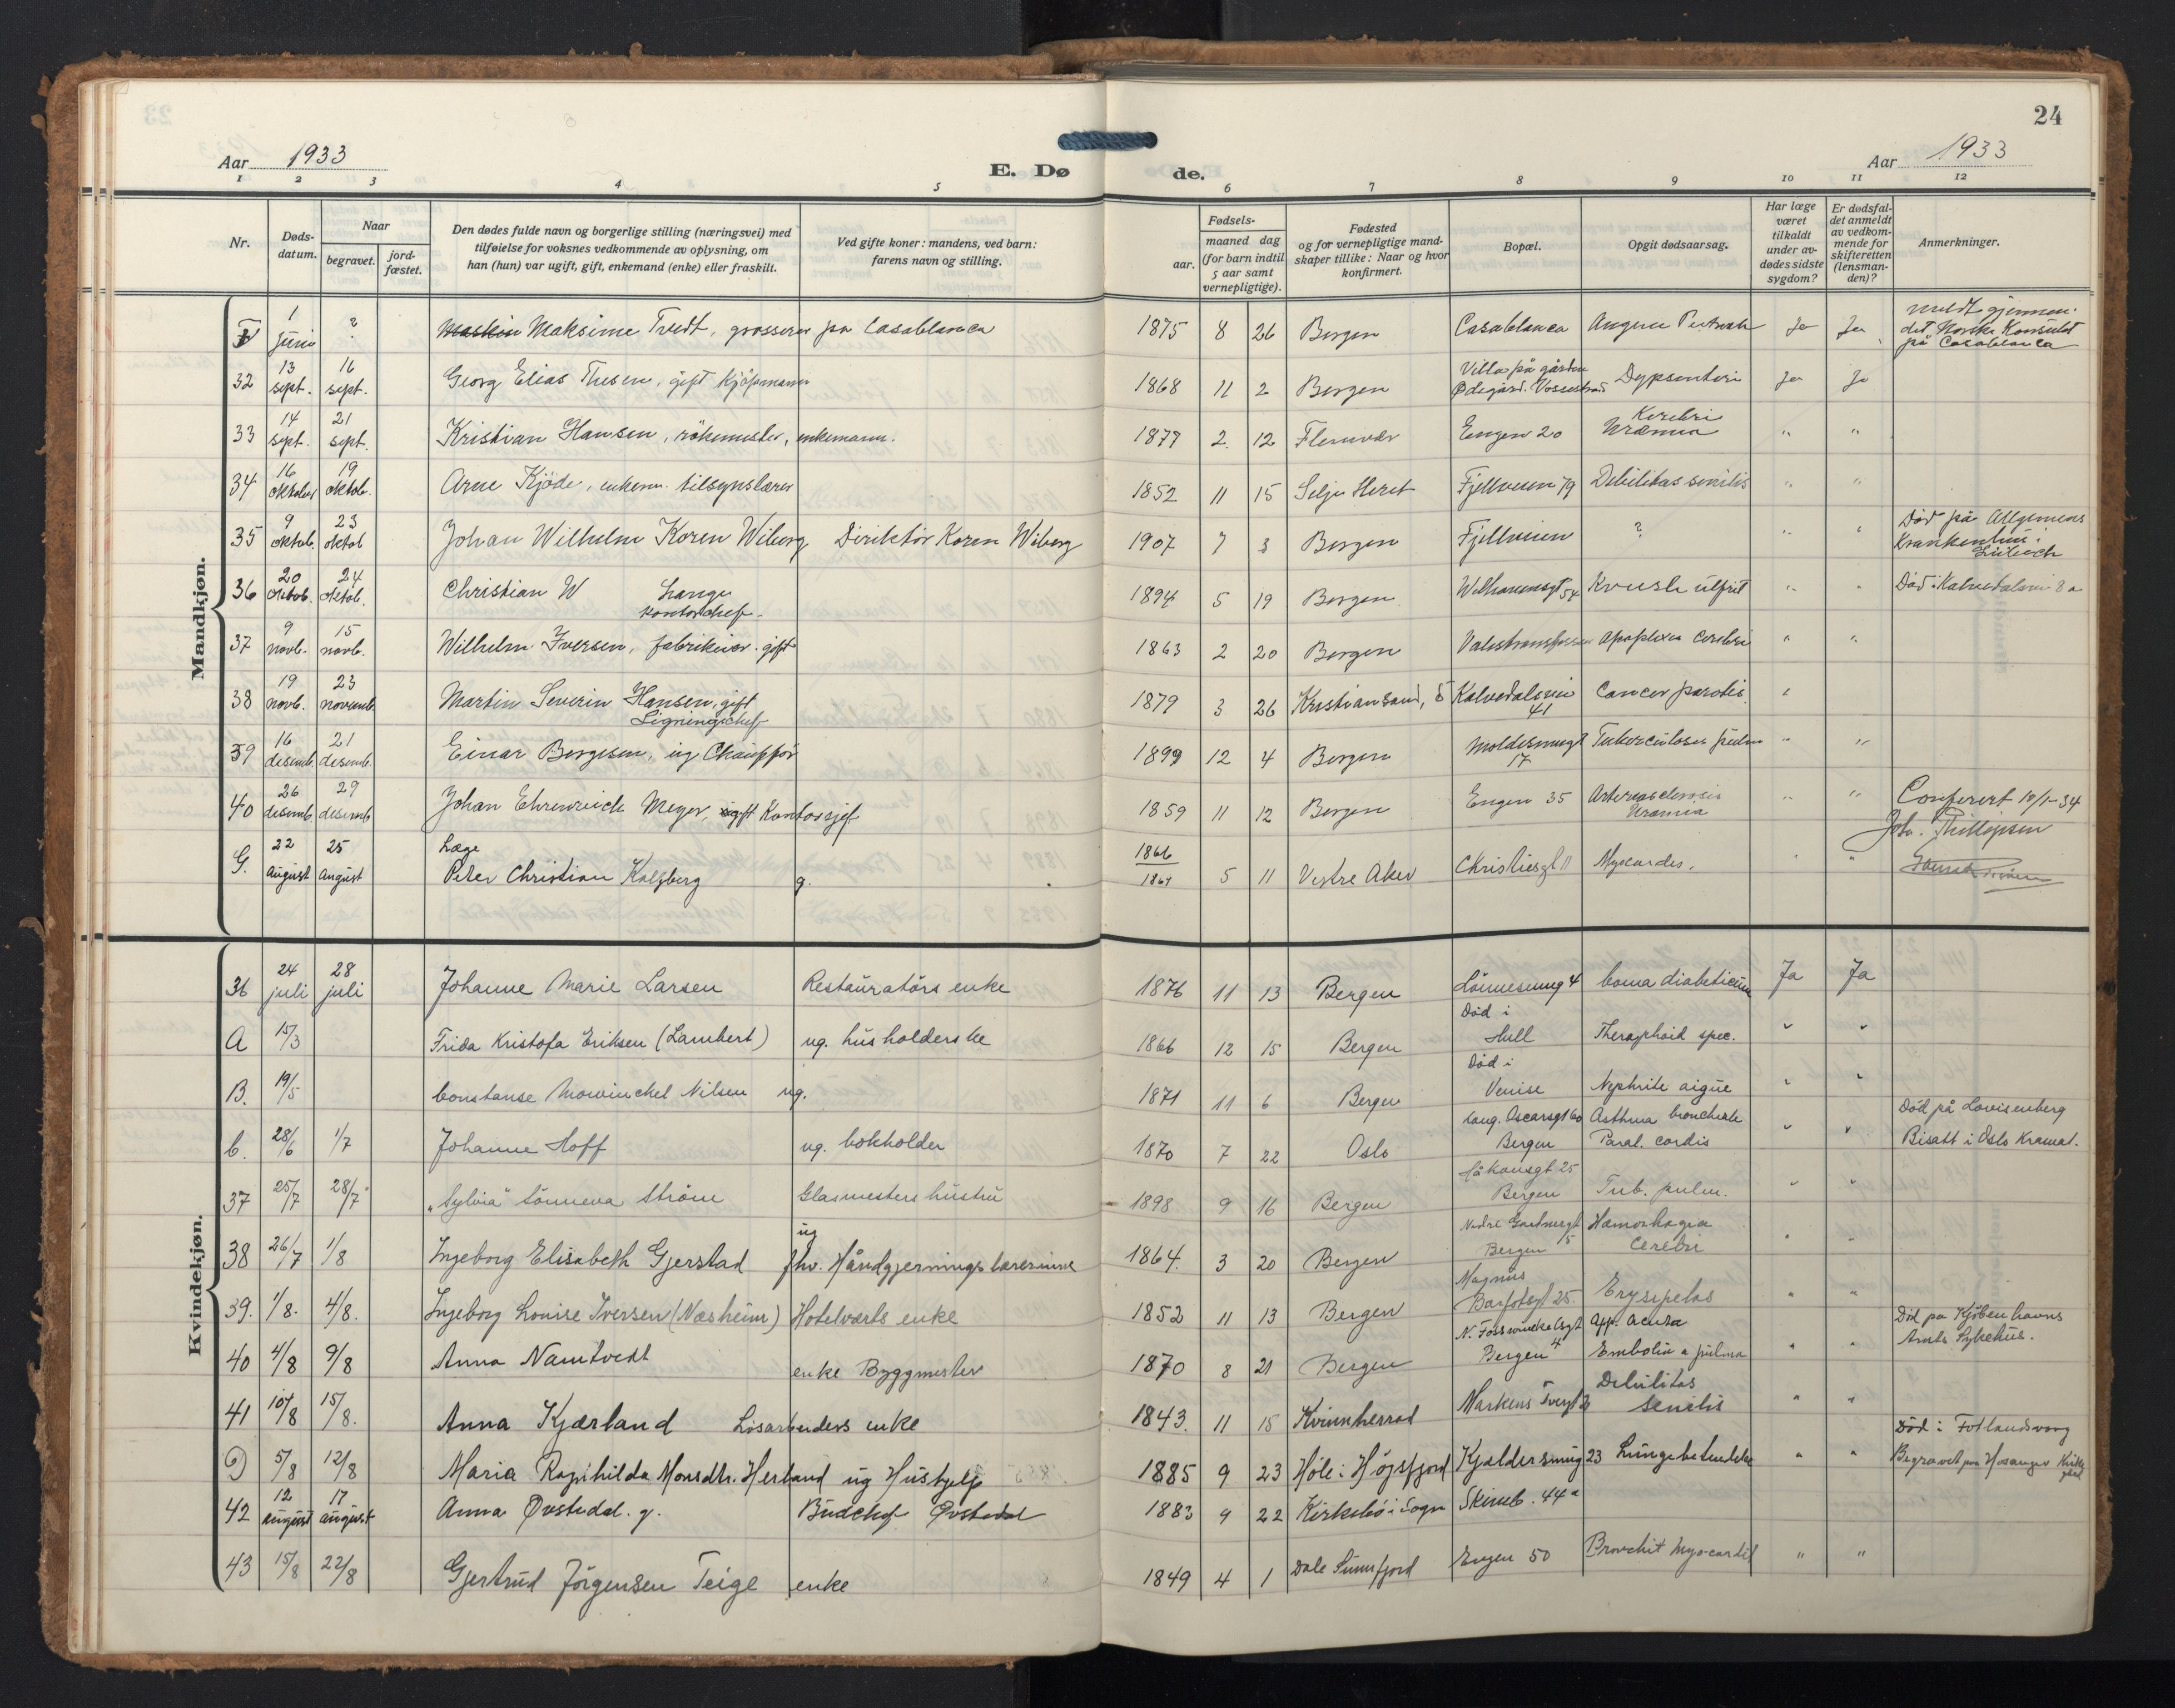 24
Aar 1933
E. Døde.
Aar 1933
1 2 3 4 5 6 7 8 9 10 11 12
Nr.
Døds-datum.
Naar
begravet.
jord-fæstet.
Den dødes fulde navn og borgerlige stilling (næringsvei) med
tilføielse for voksnes vedkommende av oplysning, om
han (hun) var ugift, gift, enkemand (enke) eller fraskilt.
Ved gifte koner: mandens, ved barn:
farens navn og stilling.
Fødsels-
aar.
maaned dag
(for barn indtil
5 aar samt
vernepligtige).
Fødested
og for vernepligtige mand-
skaper tillike: Naar og hvor
konfirmert.
Bopæl.
Opgit dødsaarsag.
Har læge
været
tilkaldt
under av-
dødes sidste
sygdom?
Er dødsfal-
det anmeldt
av vedkom-
mende for
skifteretten
(lensman-
den)?
Anmerkninger.
Mandkjøn.
F 1 juni ? Maksime Tvedt, grosserer på Casablanca 1875 8 26 Bergen Casablanca Angina Ja Ja meldt gjennem det Norske Konsulat på Casablanca
32 13 sept. 16 sept. Georg Elias Thesen, gift Kjøpmann 1868 11 2 Bergen Villa på gården Ødegård. Vossestrand Dypsenteri Ja Ja
33 14 sept. 21 sept. Kristian Hansen, enkemann. 1879 2 12 Engen 20 Uræmia " "
34 16 oktober 19 oktob. Arne Kjöde, enkem. tilsynslærer 1852 11 15 Selje Heret Fjellveien 79 Debilitas senilis " "
35 9 oktob. 23 oktob Johan Wilhelm Koren Wiberg Direktör Koren Wiberg 1907 7 3 Bergen Fjellveien ? " " Död på Allgemeines Krankenhaus i Lübeck
36 20 oktob. 24 oktob. Christian W Lange kontorchef 1894 5 19 Bergen Welhavensgt 54 " " Död i Kalvedalsvei 8 a
37 9 novb. 15 novb. Wilhelm Iversen, fabrikeier. gift 1863 2 20 Bergen Valestrandsfossen apoplexia cerebri " "
38 19 novb. 23 novemb. Martin Severin Hansen, gift Ligningschef 1879 3 26 Kristiansand, S Kalvedalsvei 41 Cancer parotis "
39 16 desemb. 21 desemb. Einar Borgesen, ug Chauffør 1899 12 4 Bergen 17 Tuberculosis pulm " "
40 26 desemb. 29 desemb Johan Ehrenreich Meyer, gift Kontorsjef 1859 11 12 Bergen Engen 35 Arteriosclerosis Uræmia " " Conferert 10/1-34
Joh. Thillypsen
G. 22 August 25 August Læge Peter Christian Kolsberg g. 1866 1864 5 11 Vestre Aker Christiesgt 11 Myocardis. " "
Kvindekjøn.
36 24 juli 28 juli Johanne Marie Larsen Restauratörs enke 1876 11 13 Bergen 4 Coma diabeticum Ja Ja
A 15/3 Frida Kristofa Eriksen (Lambert) ug. husholderske 1866 12 15 Bergen Död i Hull spec. " "
B. 19/5 Constanse Mowinckel Nilsen ug. 1871 11 6 Bergen Död i Venise Nephrite aigue " "
C. 28/6 1/7 Johanne Hoff ug. bokholder 1870 7 22 Oslo Oscarsgt 60 Bergen Asthma bronchiale Paral. cordis " " Död på Lovisenberg Bisatt i Oslo Kramat.
37 25/7 28/7 "Sylvia" Sönneva Ström Glasmesters hustru 1898 9 16 Bergen Håkonsgt 25 Bergen Tub. pulm. " "
38 26/7 1/8 Ingeborg Elisabeth Gjerstad ug fhv. Håndgjerningslærerinne 1864. 3 20 Bergen Bergen 15 Hæmorhagia Cerebri " "
39. 1/8. 4/8. Ingeborg Louise Iversen (Næsheim) Hotelværts enke 1852 11 13 Bergen Magnus Barfotsgt 25. Erysipelas " "
40 4/8 9/8 Anna Namtvedt enke Byggmester 1870 8 21 Bergen Bergen 4 App. Acuta Embolia a pulma " " Död på Kjøbenhavns Amts Sykehus.
41 10/8 15/8. Anna Kjærland Lösarbeiders enke 1843. 11 15 Kvinnherrad Markens Tvergt 3 Debilitas senilis " "
D 5/8 12/8 Maria Ragnhilda Monsdtr. Herland ug Hushjelp 1885 9 23 Höle i Högsfjord Kjeldersmug 23 Lungebetendelse " " Död i Fotlandsvåg Begravet på Hosanger Kirkegård
42 12 august 17 august Anna Øvstedal. g. Budchef Øvstedal 1883 9 22 Kirkebö i Sogn Skireb. 44a
43 15/8 22/8 Gjertrud Jörgensen Teige enke 1849 4 1 Dale Sunnfjord Engen 50 Bronchit Myocardit " "